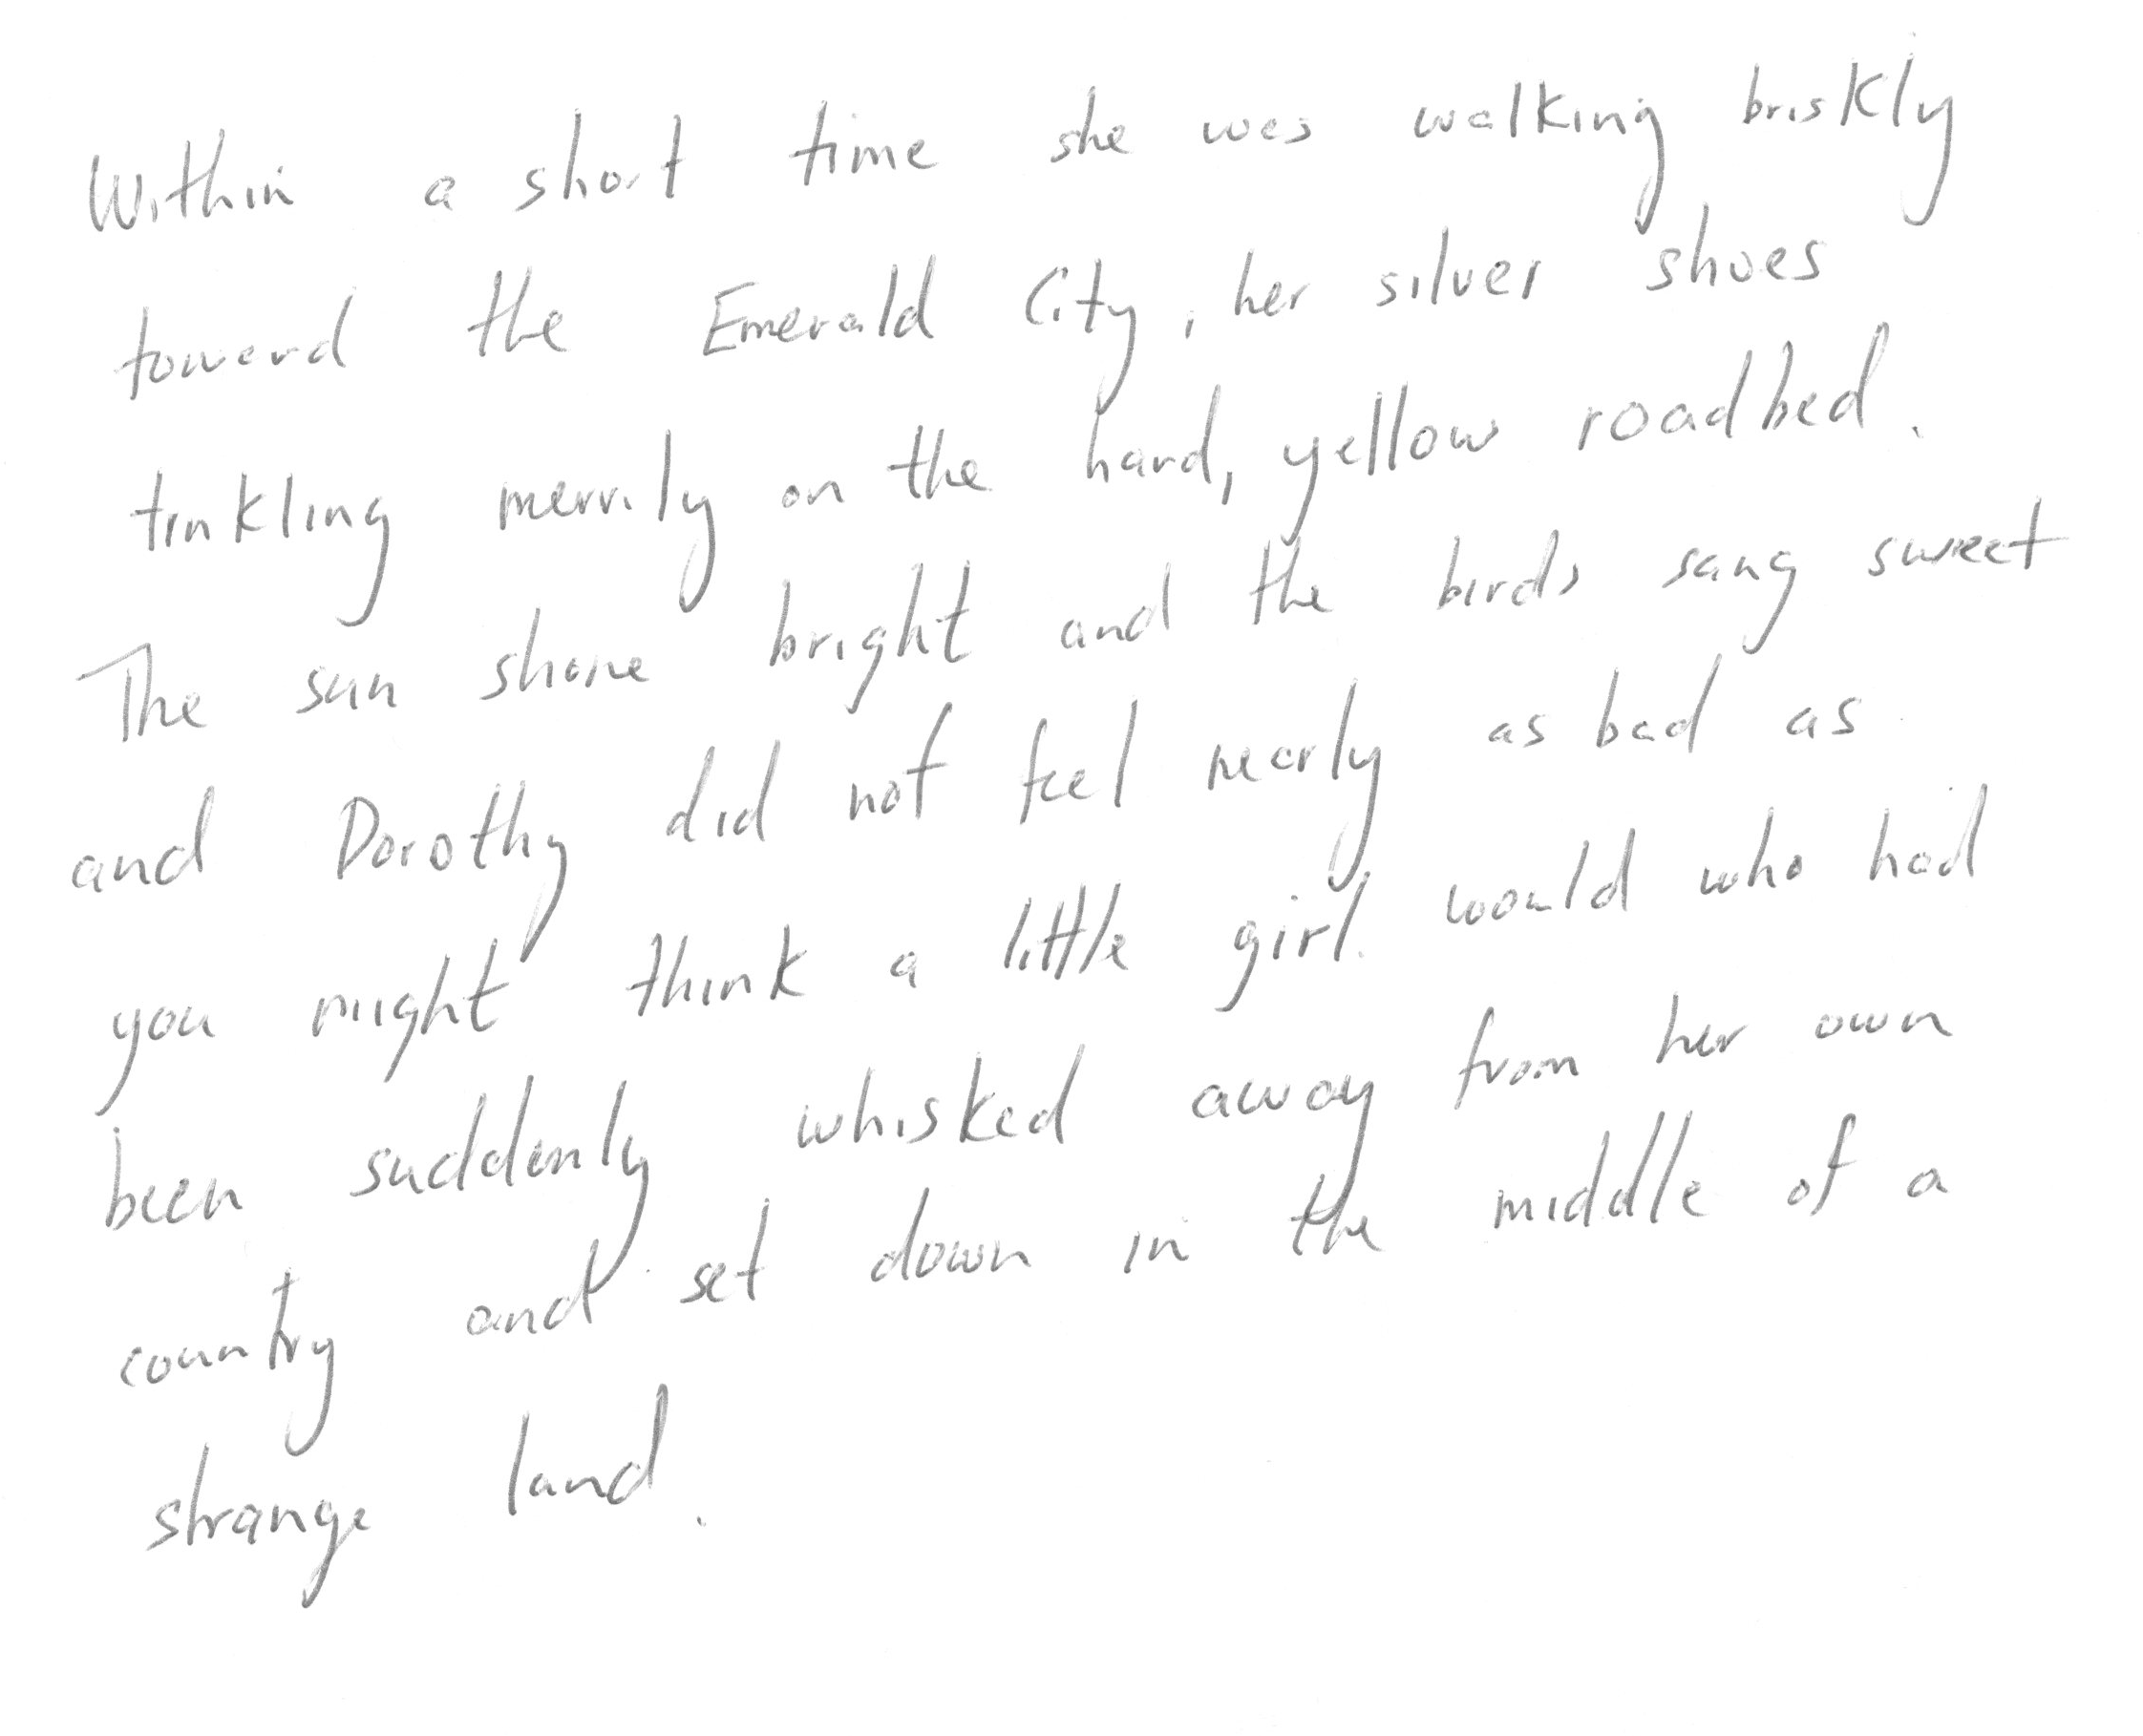 Within a short time she was walking briskly
toward the Emerald City, her silver shoes
tinkling merrily on the hard, yellow roadbed.
The sun shone bright and the birds sang sweet
and Dorothy did not feel nearly as bad as
you might think a little girl would who had
been suddenly whisked away from her own
country and set down in the middle of a
strange land.